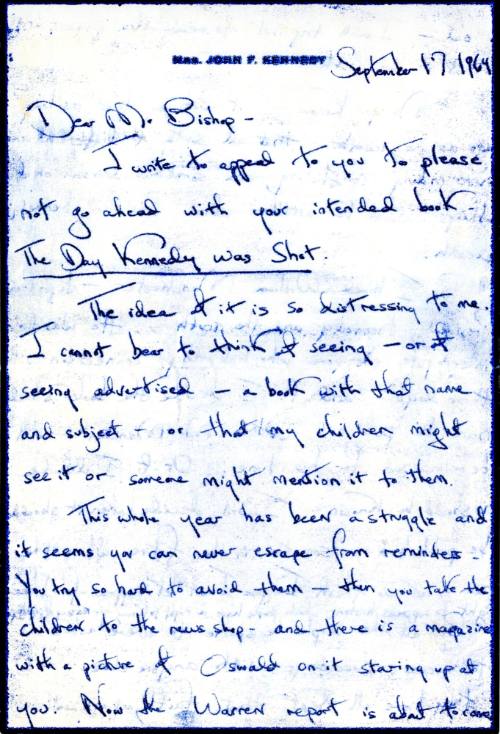 Mrs. JOHN F. KENNEDY
September 17 1964
Dear Mr Bishop -
I write to appeal to you to please
not go ahead with your intended book -
The Day Kennedy was Shot.
The idea of it is so distressing to me.
I cannot bear to think of seeing - or of
seeing advertised - a book with that name
and subject - or that my children might
see it or someone might mention it to them.
This whole year has been a struggle and
it seems you can never escape from reminders -
You try so hard to avoid them - then you take the
children to the news shop - and there is a magazine
with a picture of Oswald on it staring up at
you. Now the Warren report is about to come